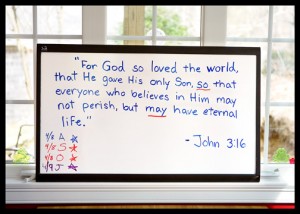 "For God so loved the world,
that He gave His only Son, so that
everyone who believes in Him may
not perish, but may have eternal
life."
- John 3:16
4/8 A
4/8 S
4/8 O
4/9 J